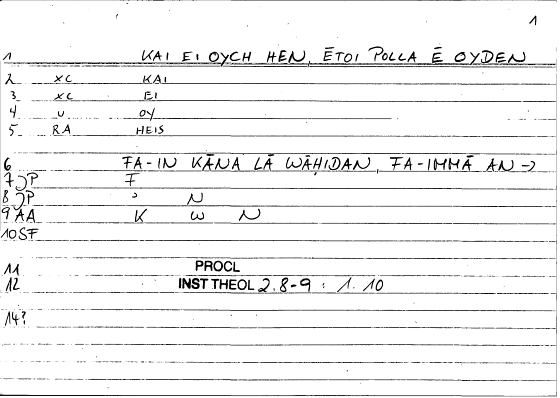 1
1 KAI EI OYCH HEN, ĒTOI POLLA Ē OYDEN
2 XC KAI
3 XC EI
4 U OY
5 RA HEIS
6 FA-IN KĀNA LĀ WĀḤIDAN, FA-IMMĀ AN →
7 JP F
8 JP ' N
9 AA K W N
10 SF
11 PROCL
12 INST THEOL 2.8-9 : 1.10
14?